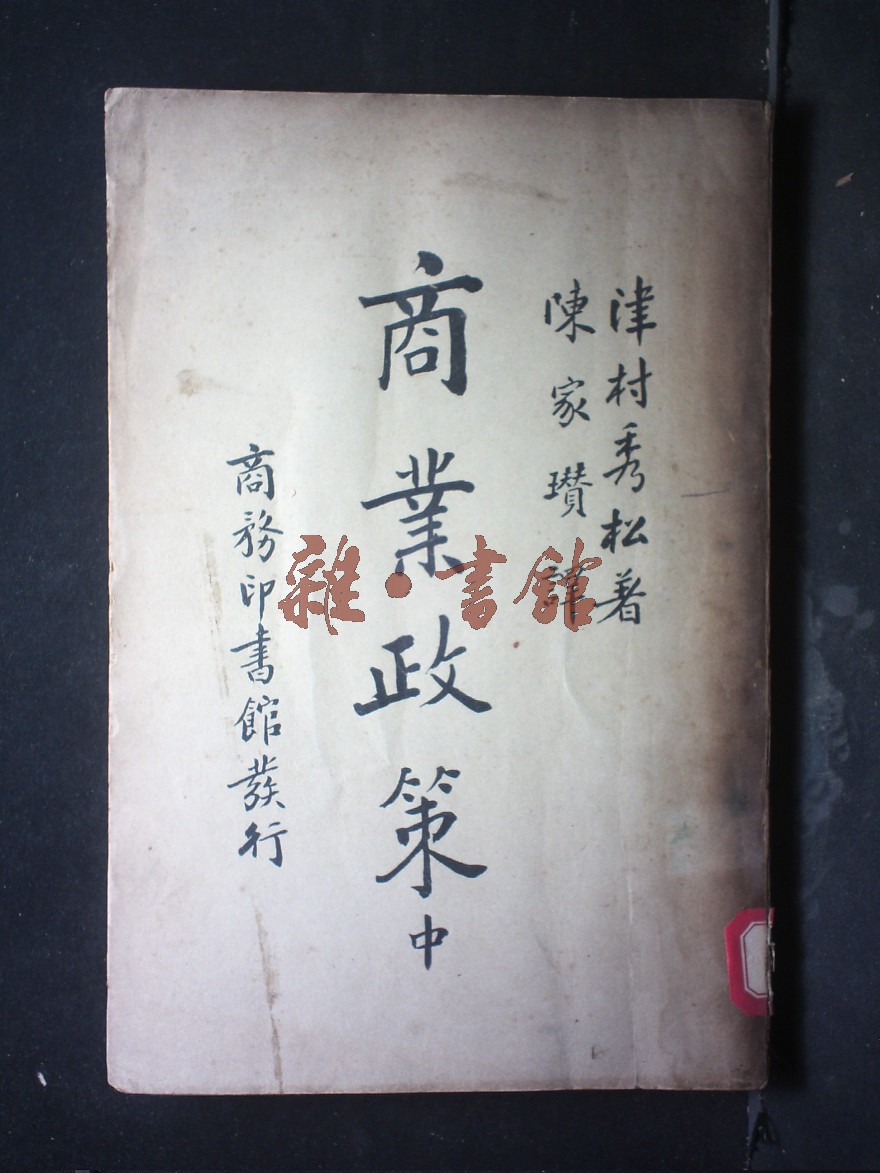 津村秀松著
陳家瓚譯
商業政策中
商務印書館發行
雜·書館